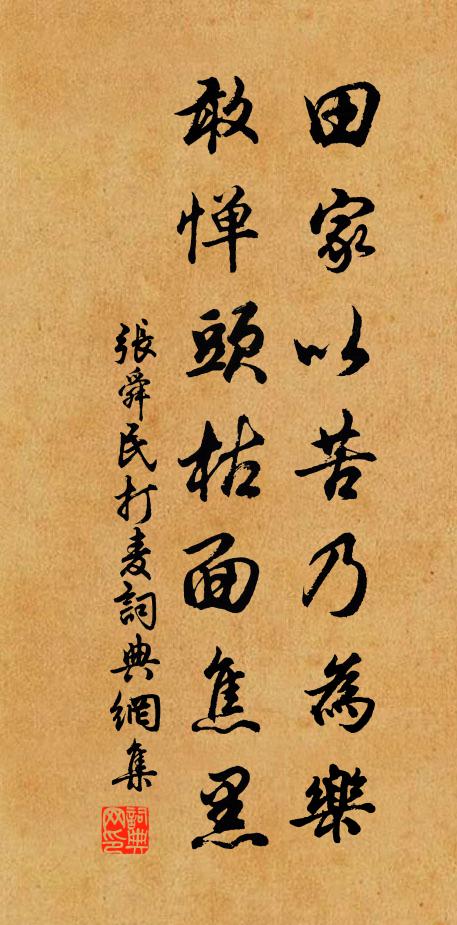 田家以苦乃為樂
敢惮頭枯面焦黑
張舜民打麦詞典網集
詞典网印